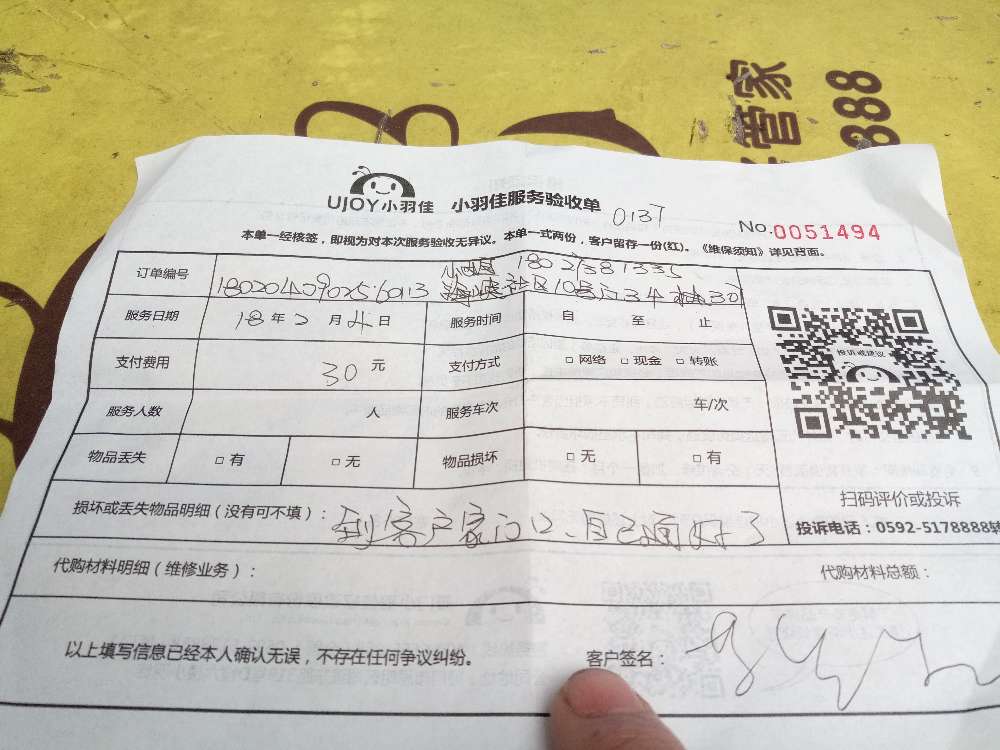 管家
888
UJOY小羽佳 小羽佳服务验收单 0137
No.0051494
本单一经核签，即视为对本次服务验收无异议。本单一式两份，客户留存一份(红)。《维保须知》详见背面。
订单编号
服务日期 18年2月4日 服务时间 自 至 止
支付费用 30元 支付方式 □网络 □现金 □转账
投诉或建议
服务人数 人 服务车次 车/次
物品丢失 □有 □无 物品损坏 □无 □有
扫码评价或投诉
损坏或丢失物品明细（没有可不填）：到客户家门口、自己弄好了
投诉电话：0592-5178888转
代购材料明细（维修业务）： 代购材料总额：
以上填写信息已经本人确认无误，不存在任何争议纠纷。 客户签名：